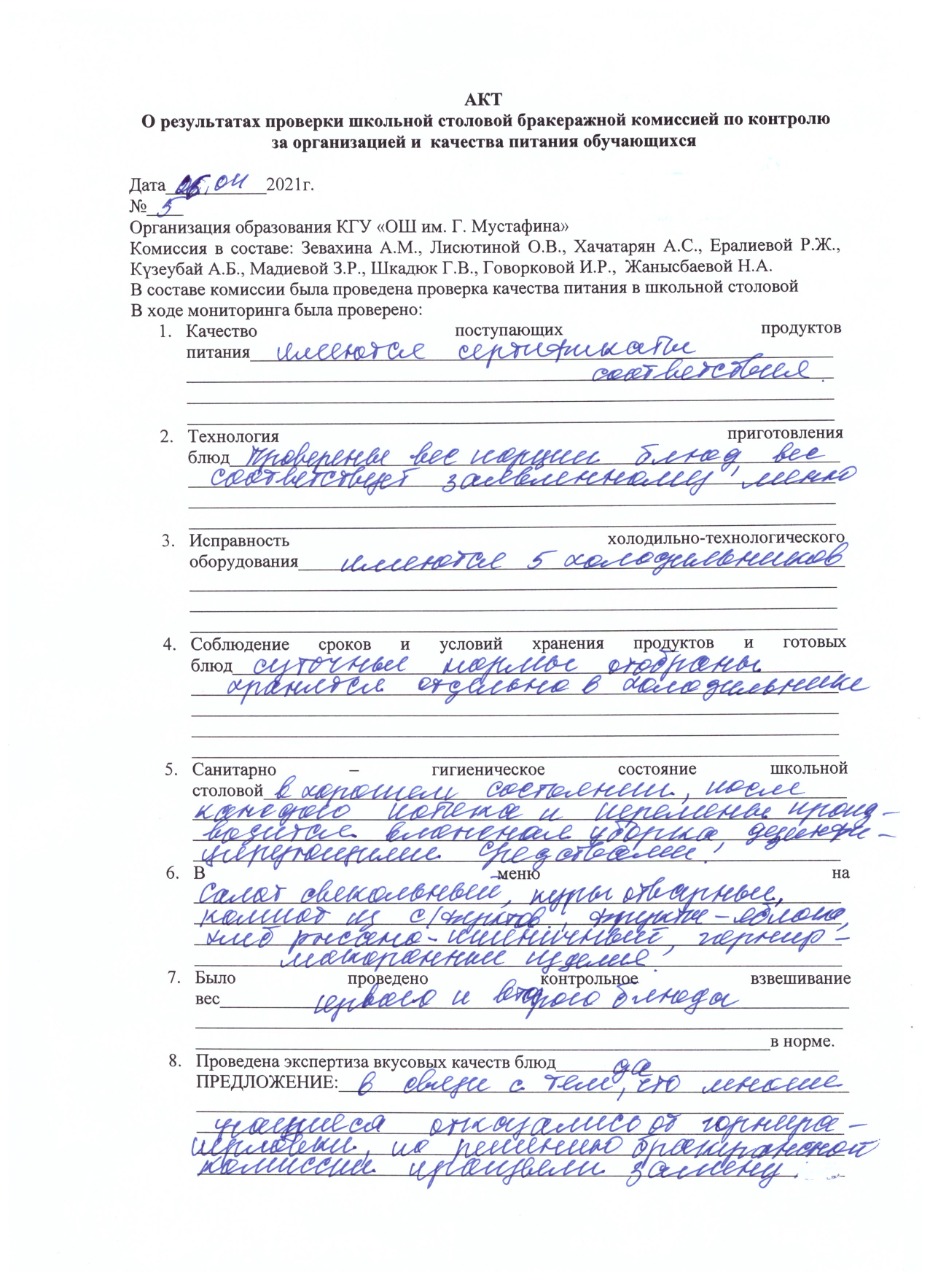 АКТ
О результатах проверки школьной столовой бракеражной комиссией по контролю
за организацией и качества питания обучающихся
Дата 2021г.
№ 5
Организация образования КГУ «ОШ им. Г. Мустафина»
Комиссия в составе: Зевахина А.М., Лисютиной О.В., Хачатарян А.С., Ералиевой Р.Ж.,
Күзеубай А.Б., Мадиевой З.Р., Шкадюк Г.В., Говорковой И.Р., Жанысбаевой Н.А.
В составе комиссии была проведена проверка качества питания в школьной столовой
В ходе мониторинга была проверено:
1. Качество поступающих продуктов
питания имеются сертификаты
соответствия.
2. Технология приготовления
блюд проверены вес порции блюд, вес
соответствует заявленному меню
3. Исправность холодильно-технологического
оборудования имеются 5 холодильников
4. Соблюдение сроков и условий хранения продуктов и готовых
блюд суточные нормы отобраны
хранятся отдельно в холодильнике
5. Санитарно – гигиеническое состояние школьной
столовой в хорошем состоянии, после
каждого потока и перемены произ-
водится влажная уборка дезинфи-
цирующими средствами.
6. В меню на
Салат свекольный, куры отварные,
компот из с/фруктов, фрукты-яблоко,
хлеб ржано-пшеничный, гарнир-
макаронные изделия.
7. Было проведено контрольное взвешивание
вес первого и второго блюда
в норме.
8. Проведена экспертиза вкусовых качеств блюд да
ПРЕДЛОЖЕНИЕ: в связи с тем, что многие
учащиеся отказались от гарнира-
перловки, по решению бракеражной
комиссии замену.